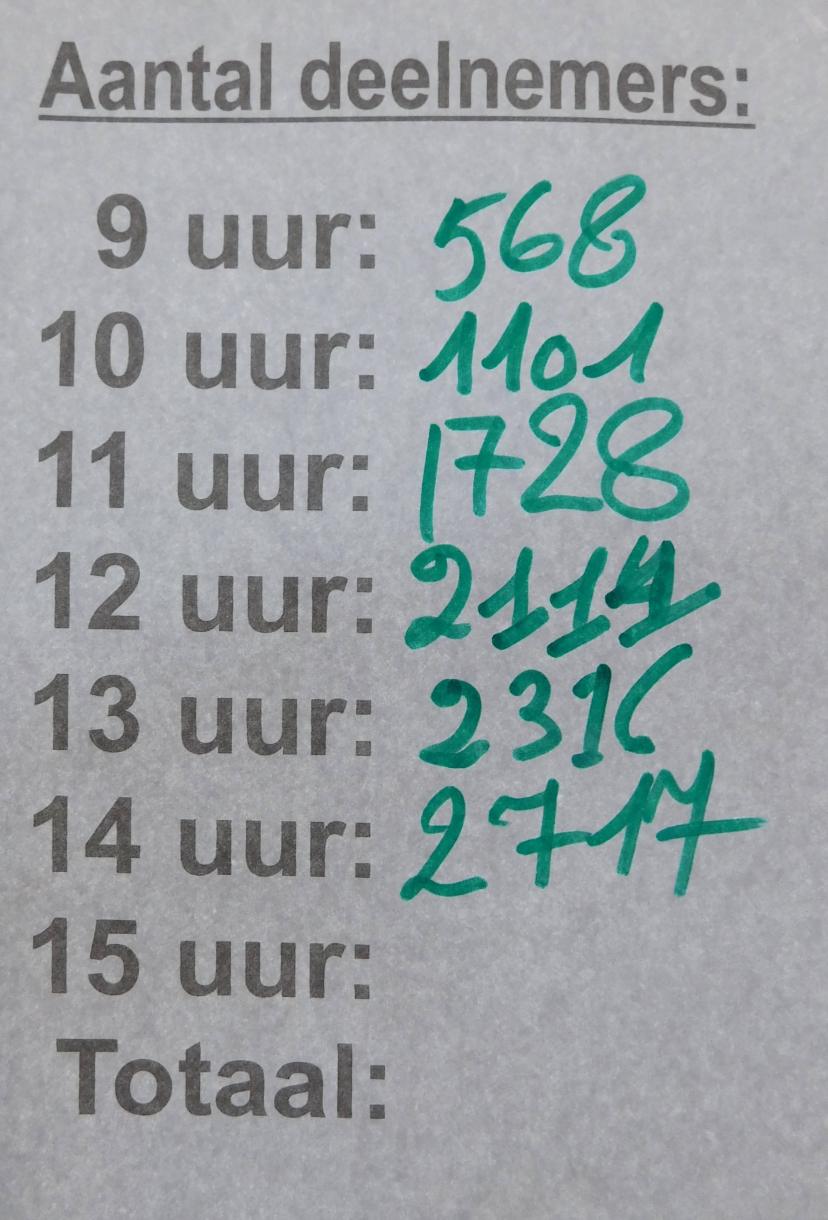 Aantal deelnemers:
9 uur: 568
10 uur: 1101
11 uur: 1728
12 uur: 2114
13 uur: 2316
14 uur: 2717
15 uur:
Totaal: